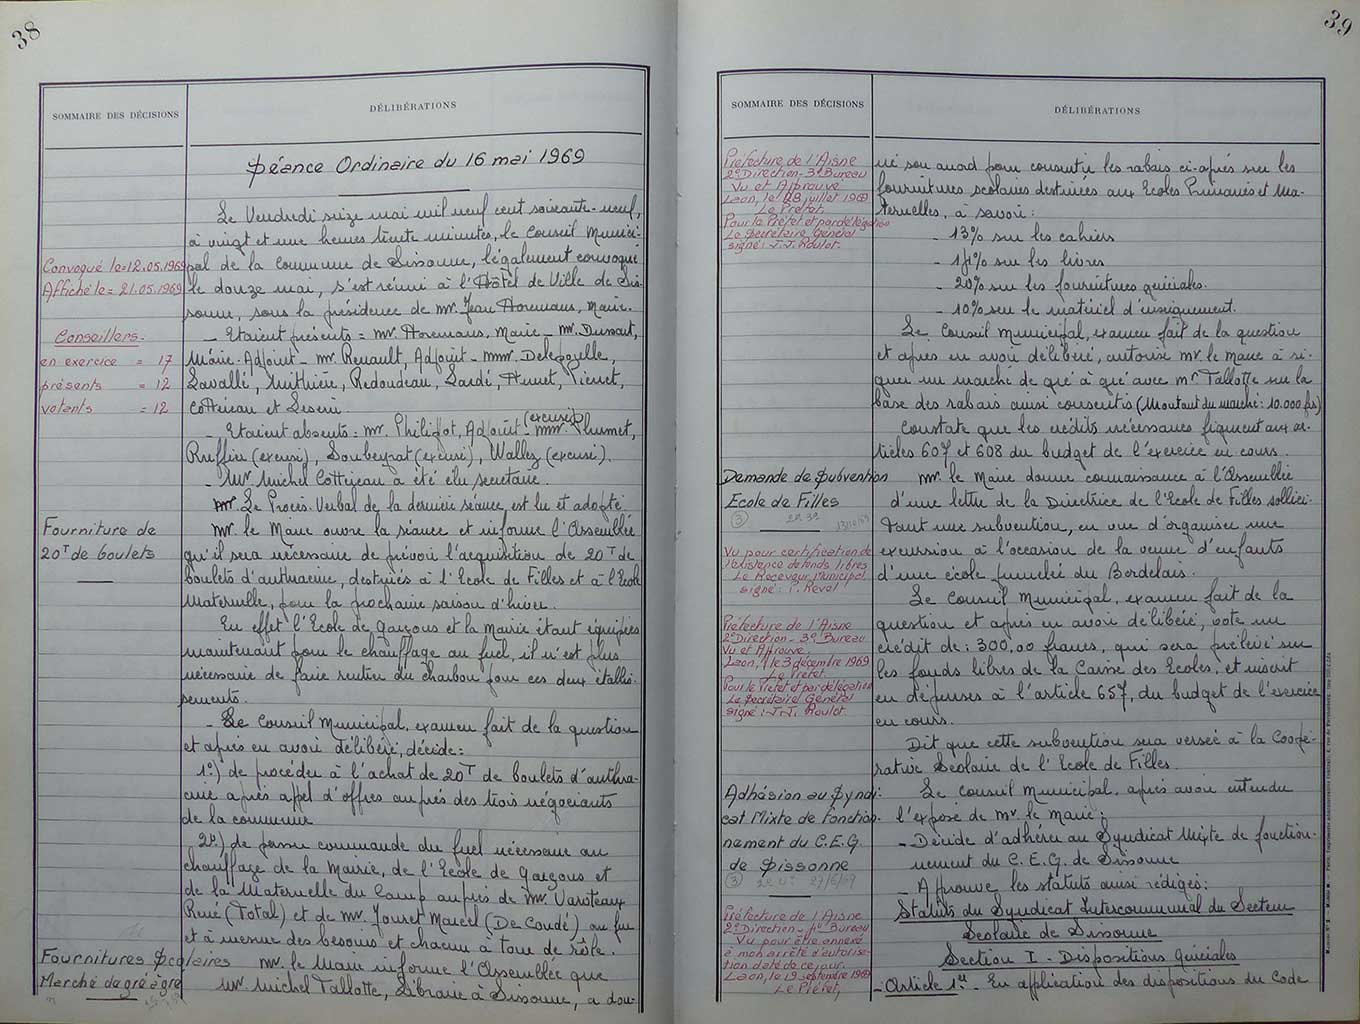 38
SOMMAIRE DES DÉCISIONS
DÉLIBÉRATIONS
Séance Ordinaire du 16 mai 1969
Le Vendredi seize mai mil neuf cent soixante-neuf,
à vingt et une heures trente minutes, le Conseil Munici-
Convoqué le = 12.05.1969
pal de la Commune de Sissonne, légalement convoqué
Affiché le = 21.05.1969
le douze mai, s'est réuni à l'Hôtel de Ville de Sis-
sonne, sous la présidence de mr. Jean Horemans, Maire.
Conseillers.
en exercice = 17
présents = 12
votants = 12
- Etaient présents = mr. Horemans, Maire - mr. Dussart,
Maire-Adjoint - mr. Renault, Adjoint - mmr. Delepoulle,
Lavallé, Redoudeau, Lardé, Hunet,
Cottereau et
- Etaient absents = mr. Philipot, Adjoint (excusé) - mmr. Plumet,
Ruffin (excusé), Soubeyrat (excusé), Wallez (excusé).
- Mr. Michel Cottereau a été élu secrétaire.
mr. Le Procès-Verbal de la dernière séance, est lu et adopté
Fourniture de
20T de boulets
mr. le Maire ouvre la séance et informe l'Assemblée
qu'il sera nécessaire de prévoir l'acquisition de 20T de
boulets d'anthracite, destinés à l'Ecole de Filles et à l'Ecole
Maternelle, pour la prochaine saison d'hiver.
En effet l'Ecole de Garçons et la Mairie étant équipées
maintenant pour le chauffage au fuel, il n'est plus
nécessaire de faire rentrer du charbon pour ces deux établis-
sements.
- Le Conseil Municipal, examen fait de la question
et après en avoir délibéré, décide :
1°) de procéder à l'achat de 20T de boulets d'anthra-
cite après appel d'offres auprès des trois négociants
de la commune
2°) de passer commande du fuel nécessaire au
chauffage de la Mairie, de l'Ecole de Garçons et
de la Maternelle du Camp auprès de mr. Varoteaux
René (Total) et de mr. Jouret Marcel (De Caudé) au fur
et à mesure des besoins et chacun à tour de rôle.
Fournitures Scolaires
Marché de gré à gré
mr. le Maire informe l'Assemblée que
mr. Michel Tallotte, Libraire à Sissonne, a don-
39
SOMMAIRE DES DÉCISIONS
DÉLIBÉRATIONS
Préfecture de l'Aisne
2e Direction - 3e Bureau
Vu et Approuvé
Laon, le 28 juillet 1969
Le Préfet,
Pour le Préfet et par délégation
Le Secrétaire Général
signé : J.J. Roulot.
né son accord pour consentir les rabais ci-après sur les
fournitures scolaires destinées aux Ecoles Primaires et Ma-
ternelles, à savoir :
- 13% sur les cahiers
- 11% sur les livres
- 20% sur les fournitures générales.
- 10% sur le matériel d'enseignement.
Le Conseil Municipal, examen fait de la question
et après en avoir délibéré, autorise mr. le Maire à si-
gner un marché de gré à gré avec mr Tallotte sur la
base des rabais ainsi consentis (Montant du marché : 10.000 frs)
Constate que les crédits nécessaires figurent aux ar-
ticles 607 et 608 du budget de l'exercice en cours.
Demande de Subvention
Ecole de Filles
3
13/10/69
mr. le Maire donne connaissance à l'Assemblée
d'une lettre de la Directrice de l'Ecole de Filles sollici-
tant une subvention, en vue d'organiser une
excursion à l'occasion de la venue d'enfants
d'une école jumelée du Bordelais.
Vu pour certification de
l'existence de fonds libres
Le Receveur Municipal
signé : P. Revol
Préfecture de l'Aisne
2e Direction - 3e Bureau
Vu et Approuvé,
Laon, le 3 décembre 1969
Le Préfet.
Pour le Préfet et par délégation
Le Secrétaire Général
signé : J.J. Roulot.
Le Conseil Municipal, examen fait de la
question et après en avoir délibéré, vote un
crédit de : 300,00 francs, qui sera prélevé sur
les fonds libres de la Caisse des Ecoles, et inscrit
en dépenses à l'article 657, du budget de l'exercice
en cours.
Dit que cette subvention sera versée à la Coopé-
rative Scolaire de l'Ecole de Filles.
Adhésion au Syndi-
cat Mixte de fonction-
nement du C.E.G.
de Sissonne
3
27/6/69
Le Conseil Municipal, après avoir entendu
l'exposé de mr. le Maire ;
- Décide d'adhérer au Syndicat Mixte de fonction-
nement du C.E.G. de Sissonne
- Approuve les statuts ainsi rédigés :
Statuts du Syndicat Intercommunal du Secteur
Scolaire de Sissonne
Section I - Dispositions Générales
Préfecture de l'Aisne
2e Direction - 1er Bureau
Vu pour être annexé
à mon arrêté d'autorisa-
tion daté de ce jour.
Laon, le 19 septembre 1969
Le Préfet,
- Article 1er - En application des dispositions du Code